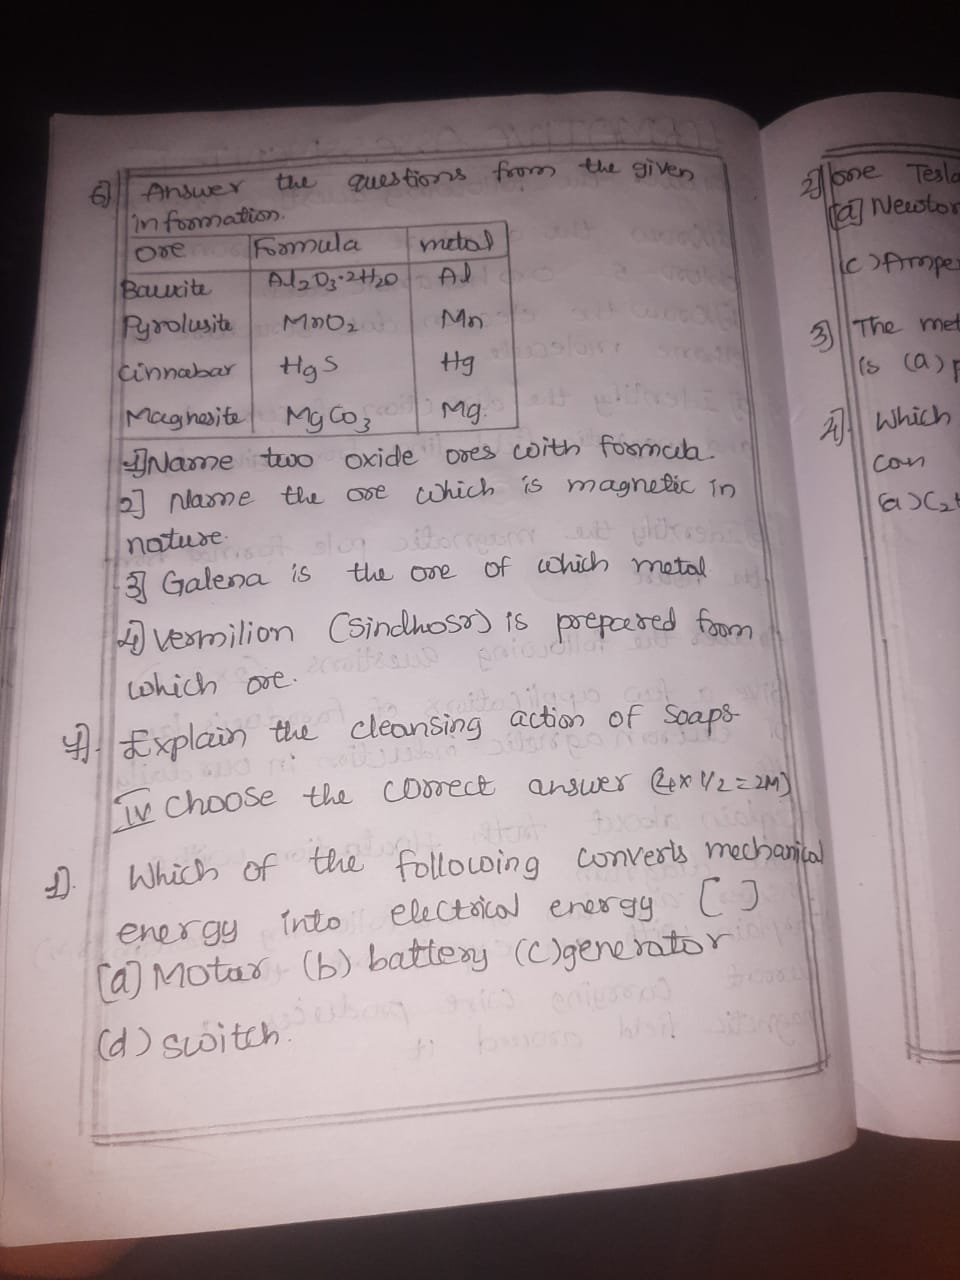 6) Answer the questions from the given
information.
ore Formula metal
Bauxite Al2O3·2H2O Al
Pyrolusite MnO2 Mn
Cinnabar HgS Hg
Magnesite MgCo3 Mg
1] Name two oxide ores with formula.
2] Name the ore which is magnetic in
nature.
3] Galena is the ore of which metal
4] Vermilion (Sindhoor) is prepared from
which ore.
Explain the cleansing action of soaps
IV Choose the correct answer (4x1/2=2M)
1). Which of the following converts mechanical
energy into electrical energy [ ]
(a) Motar (b) battery (c) generator
(d) switch.
2] one Tesla
(a) Newton
(c) Ampe
3] The met
is (a) p
4]. Which
can
(a) C2